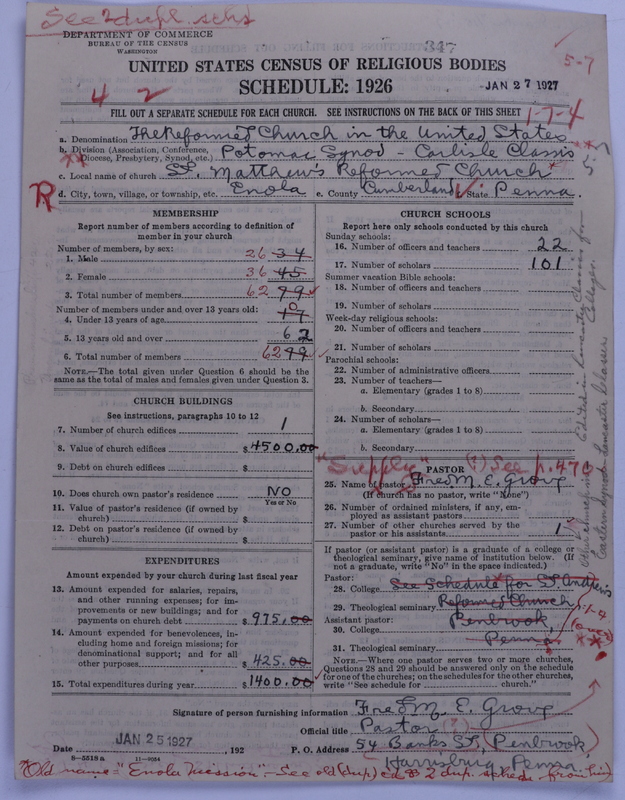 See 2 dupl. schs
DEPARTMENT OF COMMERCE
BUREAU OF THE CENSUS
WASHINGTON
347
UNITED STATES CENSUS OF RELIGIOUS BODIES
5-7
SCHEDULE: 1926
JAN 27 1927
4 2
FILL OUT A SEPARATE SCHEDULE FOR EACH CHURCH. SEE INSTRUCTIONS ON THE BACK OF THIS SHEET
1-7-4
a. Denomination The Reformed Church in the United States
b. Division (Association, Conference, Diocese, Presbytery, Synod, etc.) Potomac Synod - Carlisle Classis
c. Local name of church St. Matthew's Reformed Church
R
d. City, town, village, or township, etc. Enola e. County Cumberland State Penna.
MEMBERSHIP
Report number of members according to definition of member in your church
Number of members, by sex:
1. Male 26 34
2. Female 36 45
3. Total number of members 62 79
Number of members under and over 13 years old:
4. Under 13 years of age 0 17
5. 13 years old and over 62
6. Total number of members 62 79
NOTE.—The total given under Question 6 should be the same as the total of males and females given under Question 3.
CHURCH BUILDINGS
See instructions, paragraphs 10 to 12
7. Number of church edifices 1
8. Value of church edifices $4500.00
9. Debt on church edifices $
10. Does church own pastor's residence No
Yes or No
11. Value of pastor's residence (if owned by church) $
12. Debt on pastor's residence (if owned by church) $
EXPENDITURES
Amount expended by your church during last fiscal year
13. Amount expended for salaries, repairs, and other running expenses; for improvements or new buildings; and for payments on church debt $975.00
14. Amount expended for benevolences, including home and foreign missions; for denominational support; and for all other purposes $425.00
15. Total expenditures during year $1400.00
CHURCH SCHOOLS
Report here only schools conducted by this church
Sunday schools:
16. Number of officers and teachers 22
17. Number of scholars 101
Summer vacation Bible schools:
18. Number of officers and teachers
19. Number of scholars
Week-day religious schools:
20. Number of officers and teachers
21. Number of scholars
Parochial schools:
22. Number of administrative officers
23. Number of teachers—
a. Elementary (grades 1 to 8)
b. Secondary
24. Number of scholars—
a. Elementary (grades 1 to 8)
b. Secondary
"Supply" (?) See p. 470
PASTOR
25. Name of pastor Fred M. E. Grove
(If church has no pastor, write "None")
26. Number of ordained ministers, if any, employed as assistant pastors
27. Number of other churches served by the pastor or his assistants 1
If pastor (or assistant pastor) is a graduate of a college or theological seminary, give name of institution below. (If not a graduate, write "No" in the space indicated.)
Pastor:
28. College See Schedule for St Andrew's
29. Theological seminary Reformed Church
Assistant pastor:
30. College Penbrook,
31. Theological seminary Penna
NOTE.—Where one pastor serves two or more churches, Questions 28 and 29 should be answered only on the schedule for one of the churches; on the schedules for the other churches, write "See schedule for church."
Signature of person furnishing information Fred M. E. Grove
Official title Pastor (?)
Date JAN 25 1927, 192
P. O. Address 54 Banks St, (Penbrook)
Harrisburg Penna.
8—5518 a 11—9054
Old name = "Enola Mission" - See old (dup) cd & 2 dup. scheds from him